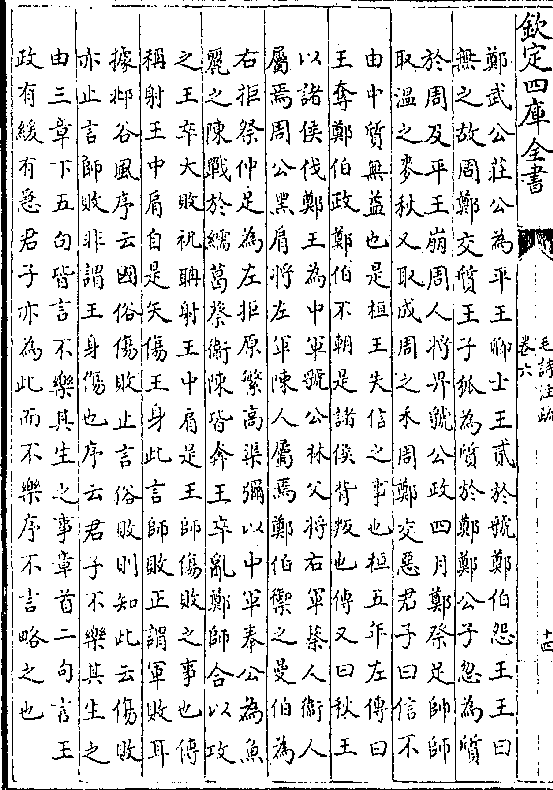 欽定四庫全書
毛詩注疏
卷六
十四
鄭武公莊公為平王卿士王貳於虢鄭伯怨王王曰
無之故周鄭交質王子狐為質於鄭鄭公子忽為質
於周及平王崩周人將畀虢公政四月鄭祭足帥師
取溫之麥秋又取成周之禾周鄭交惡君子曰信不
由中質無益也是桓王失信之事也桓五年左傳曰
王奪鄭伯政鄭伯不朝是諸侯背叛也傳又曰秋王
以諸侯伐鄭王為中軍虢公林父將右軍蔡人衛人
屬焉周公黑肩將左軍陳人屬焉鄭伯禦之曼伯為
右拒祭仲足為左拒原繁高渠彌以中軍奉公為魚
麗之陳戰於繻葛蔡衛陳皆奔王卒亂鄭師合以攻
之王卒大敗祝聃射王中肩是王師傷敗之事也傳
稱射王中肩自是矢傷王身此言師敗正謂軍敗耳
據邶谷風序云國俗傷敗止言俗敗則知此云傷敗
亦止言師敗非謂王身傷也序云君子不樂其生之
由三章下五句皆言不樂其生之事章首二句言王
政有緩有急君子亦為此而不樂序不言略之也